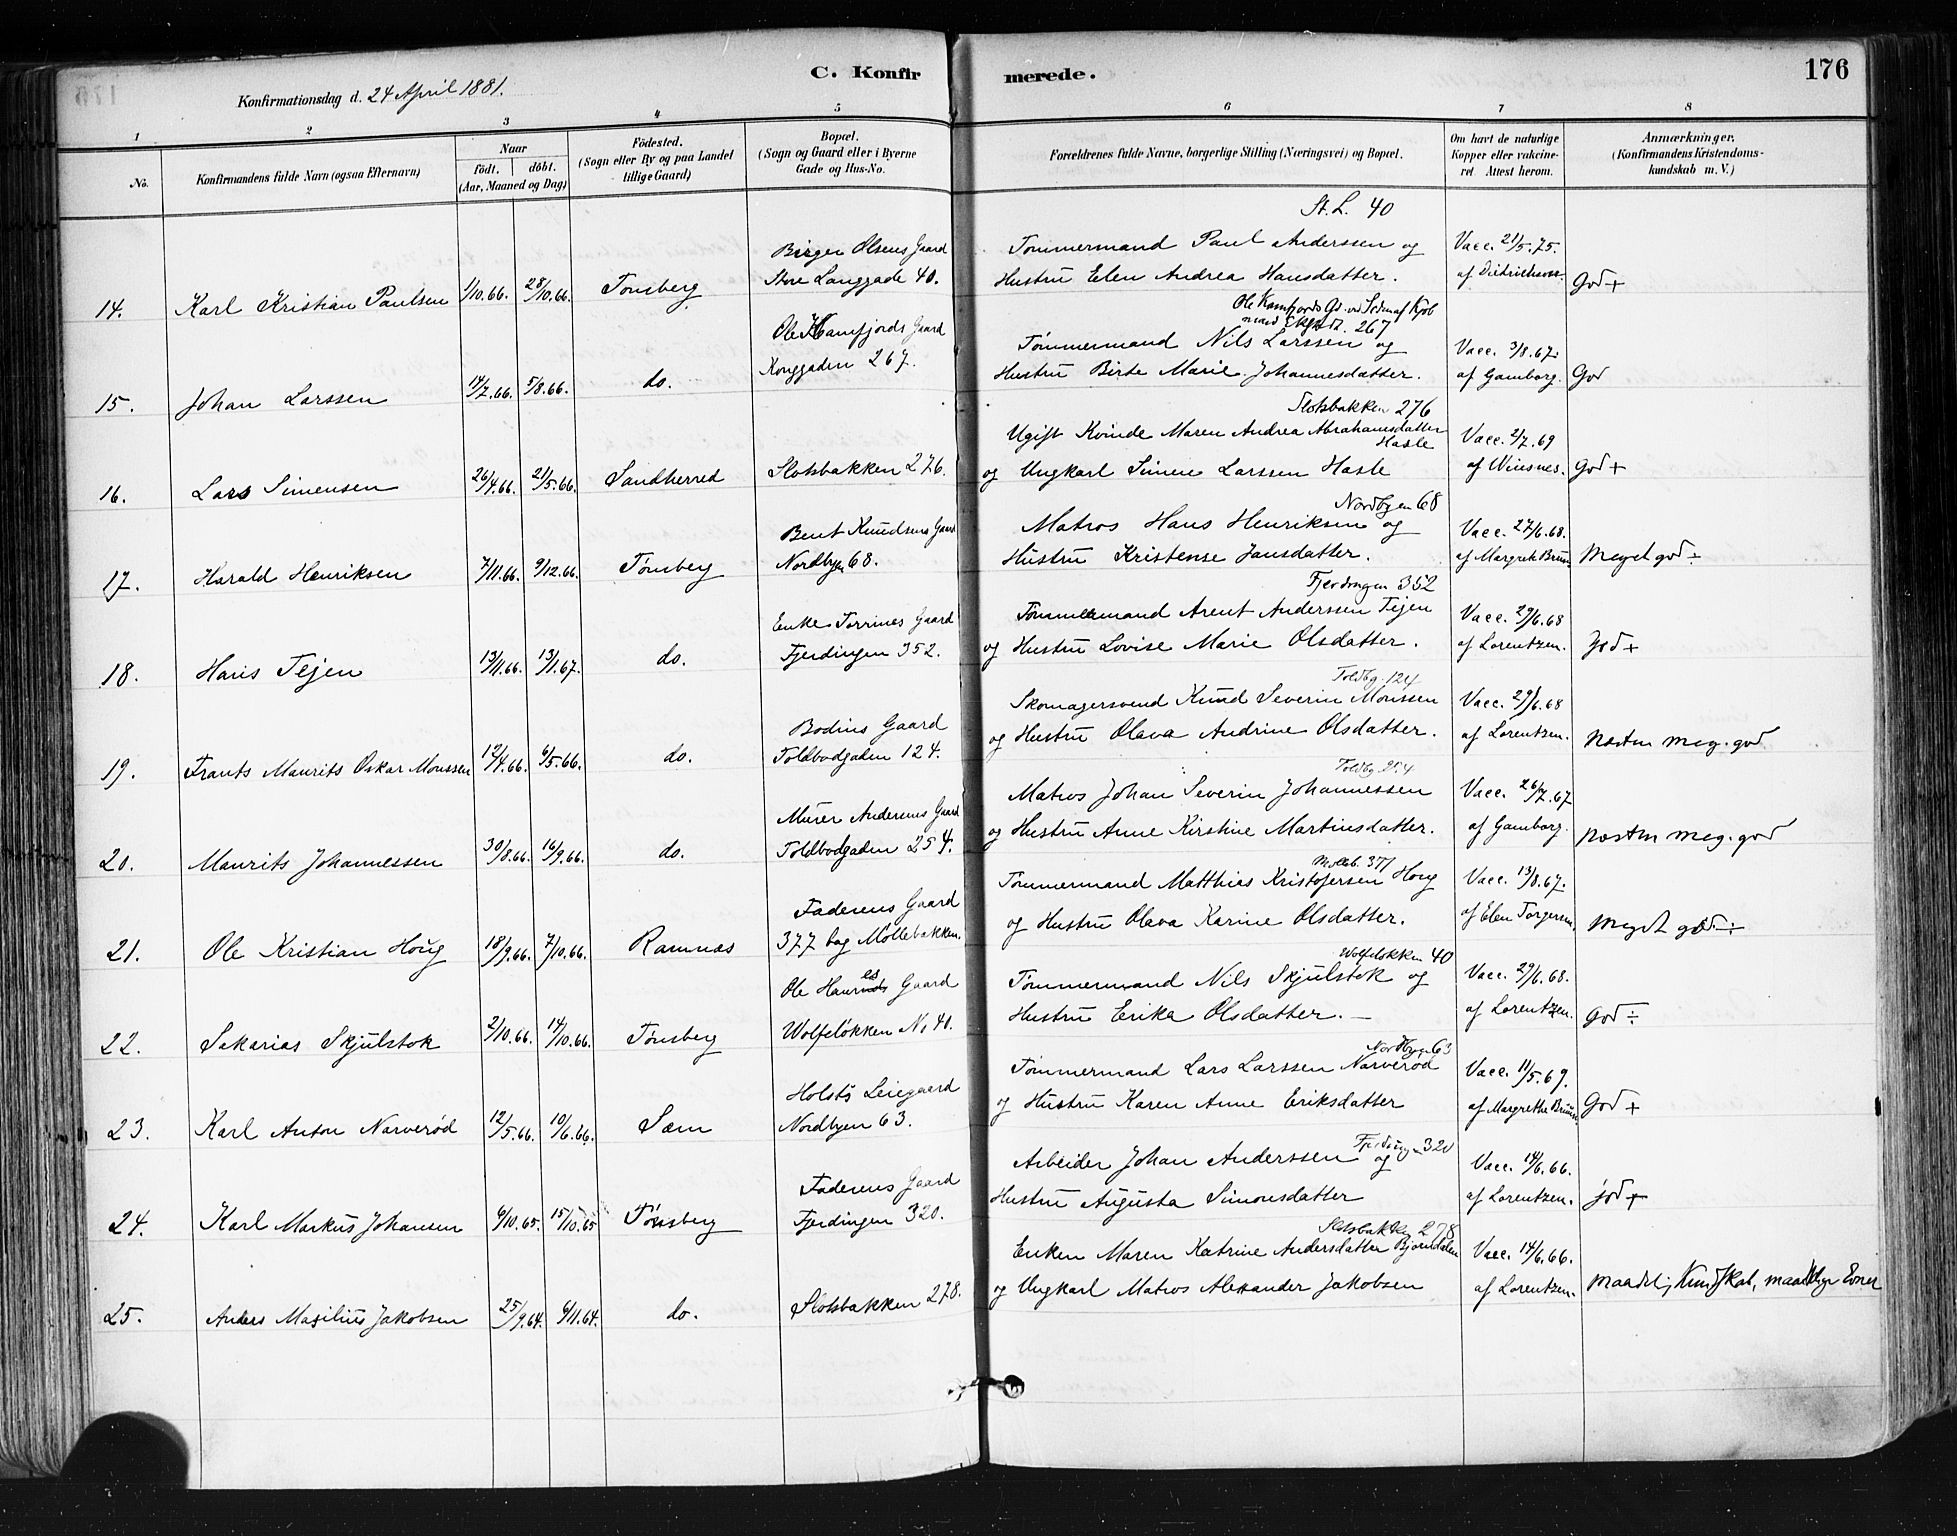 C. Konfirmerede. 176
Konfirmationsdag d. 24 April 1881.
1 2 3 4 5 6 7 8
No. Konfirmandens fulde Navn (ogsaa Efternavn) Naar födt. döbt. (Aar, Maaned og Dag) Födested. (Sogn eller By og paa Landet tillige Gaard) Bopæl. (Sogn og Gaard eller i Byerne Gade og Hus-No. Forældrenes fulde Navne, borgerlige Stilling (Næringsvei) og Bopæl. Om havt de naturlige Kopper eller vakcineret Attest herom. Anmærkninger. (Konfirmandens Kristendomskundskab m. V.)
14. Karl Kristian Paulsen 1/10.66. 28/10.66. Tønsberg Birger Olsens Gaard Store Langgade 40. St. L. 40 Tømmermand Paul Anderssen og Hustru Elen Andrea Hansdatter. Vacc. 21/5.75. af God +
15. Johan Larssen 14/7.66. 5/8.66. do. Ole Kamfjords Gaard Konggaden 267. Ole Kamfjords Gd. 267 Tømmermand Nils Larssen og Hustru Birte Marie Johannesdatter. Vacc. 3/8.67. af Gamborg. God
16. Lars Simensen 26/4.66. 21/5.66. Sandherred Slotsbakken 276. Slotsbakken 276 Ugift Kvinde Maren Andrea Abrahamsdatter Hasle og Ungkarl Simen Larssen Hasle Vacc. 2/7.69 af Winsnes. God +
17. Harald Henriksen 7/11.66. 9/12.66. Tønsberg Bent Knudsens Gaard Nordbyen 68. Nordbyen 68 Matros Hans Henriksen og Hustru Kristense Jansdatter. Vacc. 27/6.68. af Margrete Bruun. Meget god ÷
18. Hans Tejen 13/11.66. 13/1.67. do. Enke Torrines Gaard Fjerdingen 352. Fjerdingen 352 Tømmermand Arent Anderssen Tejen og Hustru Lovise Marie Olsdatter. Vacc. 29/6.68 af Lorentzen. God +
19. Frants Maurits Oskar Monssen 12/4.66. 6/5.66. do. Bodins Gaard Toldbodgaden 124. Toldbg. 124 Skomagersvend Knud Severin Monssen og Hustru Olava Andrine Olsdatter. Vacc. 29/6.68 af Lorentzen. Næsten meg. god
20. Maurits Johannessen 30/8.66. 16/9.66. do. Murer Andersens Gaard Toldbodgaden 254. Toldbg. 254 Matros Johan Severin Johannessen og Hustru Anne Kirstine Martinsdatter. Vacc. 26/7.67 af Gamborg. Næsten meg. god
21. Ole Kristian Houg 18/9.66. 7/10.66. Ramnæs Faderens Gaard 377 bag Møllebakken. Mølleb. 377 Tømmermand Matthias Kristofersen Houg og Hustru Olava Karine Olsdatter. Vacc. 13/8.67. af Elen Torgersen. Meget god ÷
22. Sakarias Skjulstok 2/10.66. 14/10.66. Tønsberg Ole Gaard Wolfeløkken No 40. Wolfeløkken 40 Tømmermand Nils Skjulstok og Hustru Erika Olsdatter. — Vacc. 29/6.68. af Lorentzen. God ÷
23. Karl Anton Narverød 12/5.66. 10/6.66. Sæm Holsts Leiegaard Nordbyen 63. Nordbyen 63 Tømmermand Lars Larssen Narverød og Hustru Karen Anne Eriksdatter Vacc. 11/5.69. af Margrethe Bruun. God +
24. Karl Markus Johansen 6/10.65. 15/10.65 Tønsberg Faderens Gaard Fjerdingen 320. Fjerdingen 320 Arbeider Johan Anderssen og Hustru Augusta Simonsdatter Vacc. 14/6.66. af Lorentzen. God +
25. Anders Masilius Jakobsen 25/9.64. 6/11.64. do. Slotsbakken 278. Slotsbakken 278 Enken Maren Katrine Andersdatter Bjørndalen og Ungkarl Matros Alexander Jakobsen Vacc. 14/6.66. af Lorentzen. Maadelig Kundskab, maadelige Evner